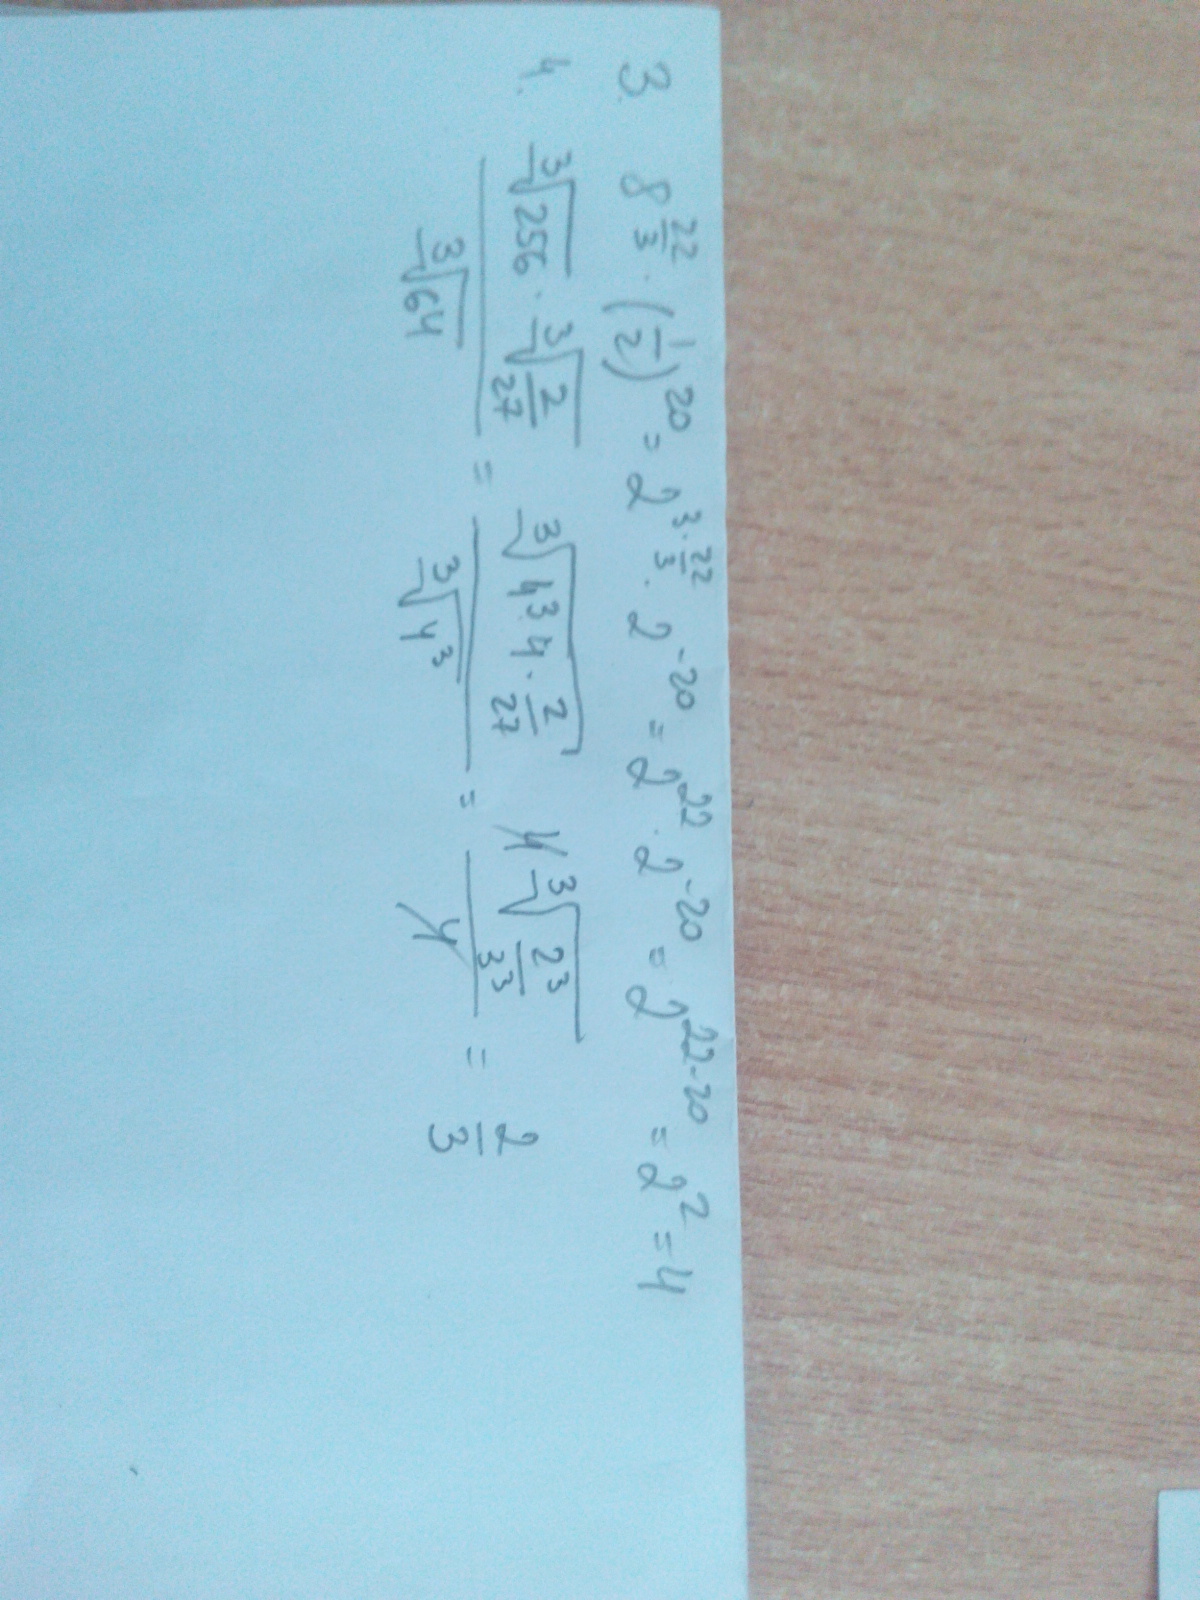 3. 8^(22/3) · (1/2)^20 = 2^(3·22/3) · 2^(-20) = 2^22 · 2^(-20) = 2^(22-20) = 2^2 = 4
4. (∛256 · ∛(2/27)) / ∛64 = ∛(4^3·4·2/27) / ∛(4^3) = (4∛(2^3/3^3)) / 4 = 2/3